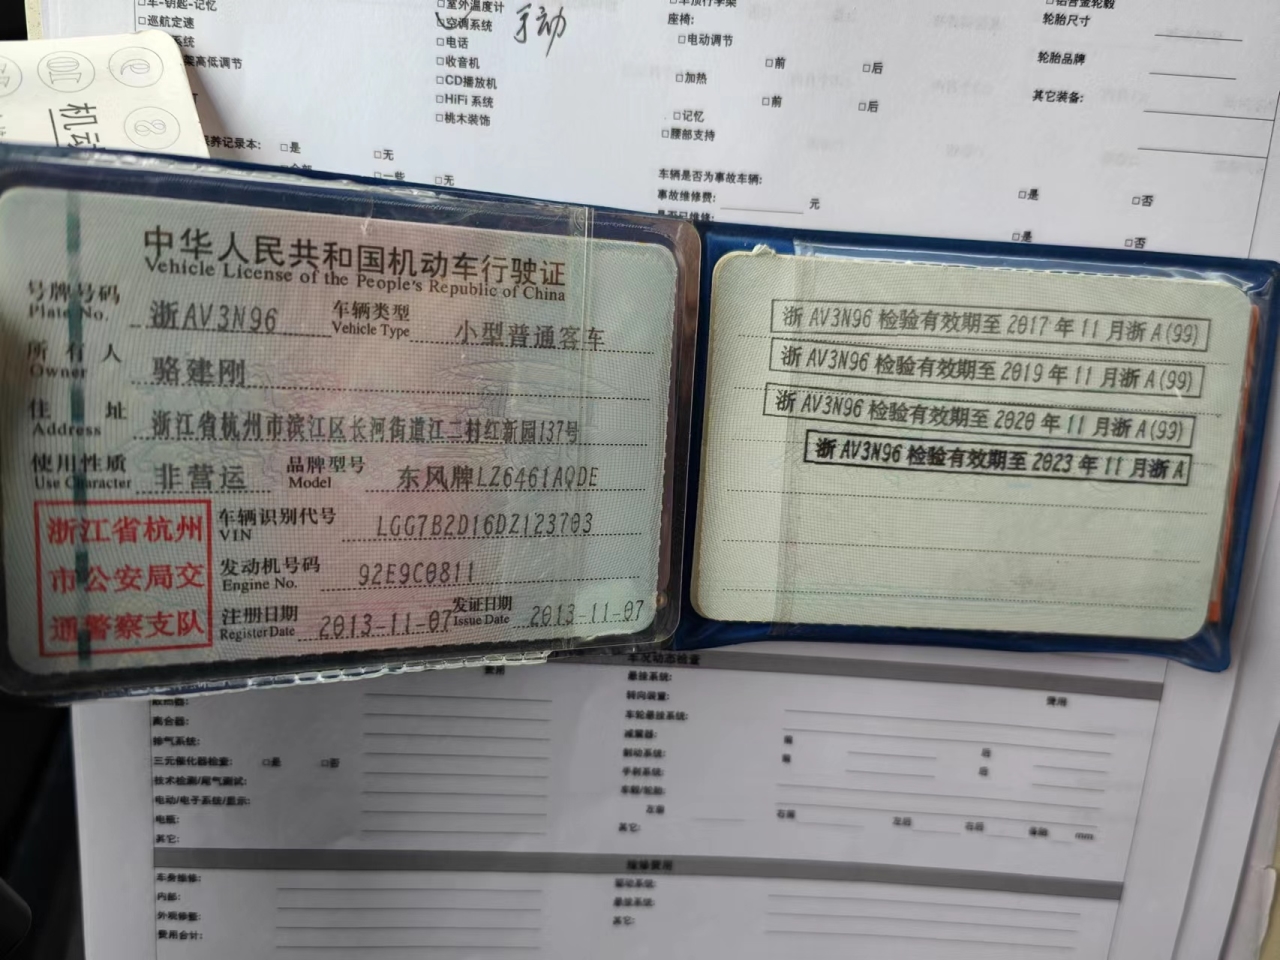 车-钥匙-记忆
□巡航定速
系统
架高低调节
养记录本: □是 □无
□一些 □无
□室外温度计
空调系统 手动
□电话
□收音机
□CD播放机
□HiFi 系统
□桃木装饰
座椅:
□电动调节
□前 □后
□加热
□前 □后
□记忆
□腰部支持
车辆是否为事故车辆: □是 □否
事故维修费: 元
是否已维修: □是 □否
轮胎尺寸
轮胎品牌
其它装备:
机动
中华人民共和国机动车行驶证
Vehicle License of the People's Republic of China
号牌号码 浙AV3N96 车辆类型 小型普通客车
Plate No. Vehicle Type
所有人 骆建刚
Owner
住址 浙江省杭州市滨江区长河街道江二村红新园137号
Address
使用性质 非营运 品牌型号 东风牌LZ6461AQDE
Use Character Model
浙江省杭州
市公安局交
通警察支队
车辆识别代号 LGG7B2D16DZ123703
VIN
发动机号码 92E9C0811
Engine No.
注册日期 2013-11-07 发证日期 2013-11-07
Register Date Issue Date
浙AV3N96 检验有效期至 2017 年 11 月浙 A(99)
浙AV3N96 检验有效期至 2019 年 11 月浙 A(99)
浙AV3N96 检验有效期至 2020 年 11 月浙 A(99)
浙 AV3N96 检验有效期至 2023 年 11 月浙 A
费用
散热器:
离合器:
排气系统:
三元催化器检查: □是 □否
技术检测/尾气测试:
电动/电子系统/显示:
电瓶:
其它:
悬挂系统:
转向装置: 费用
车轮悬挂系统:
减震器:
制动系统:
手刹系统:
车辋/轮胎:
mm
其它:
车身维修:
内部:
外观修整:
费用合计:
维修费用
驱动系统:
悬挂系统:
其它: